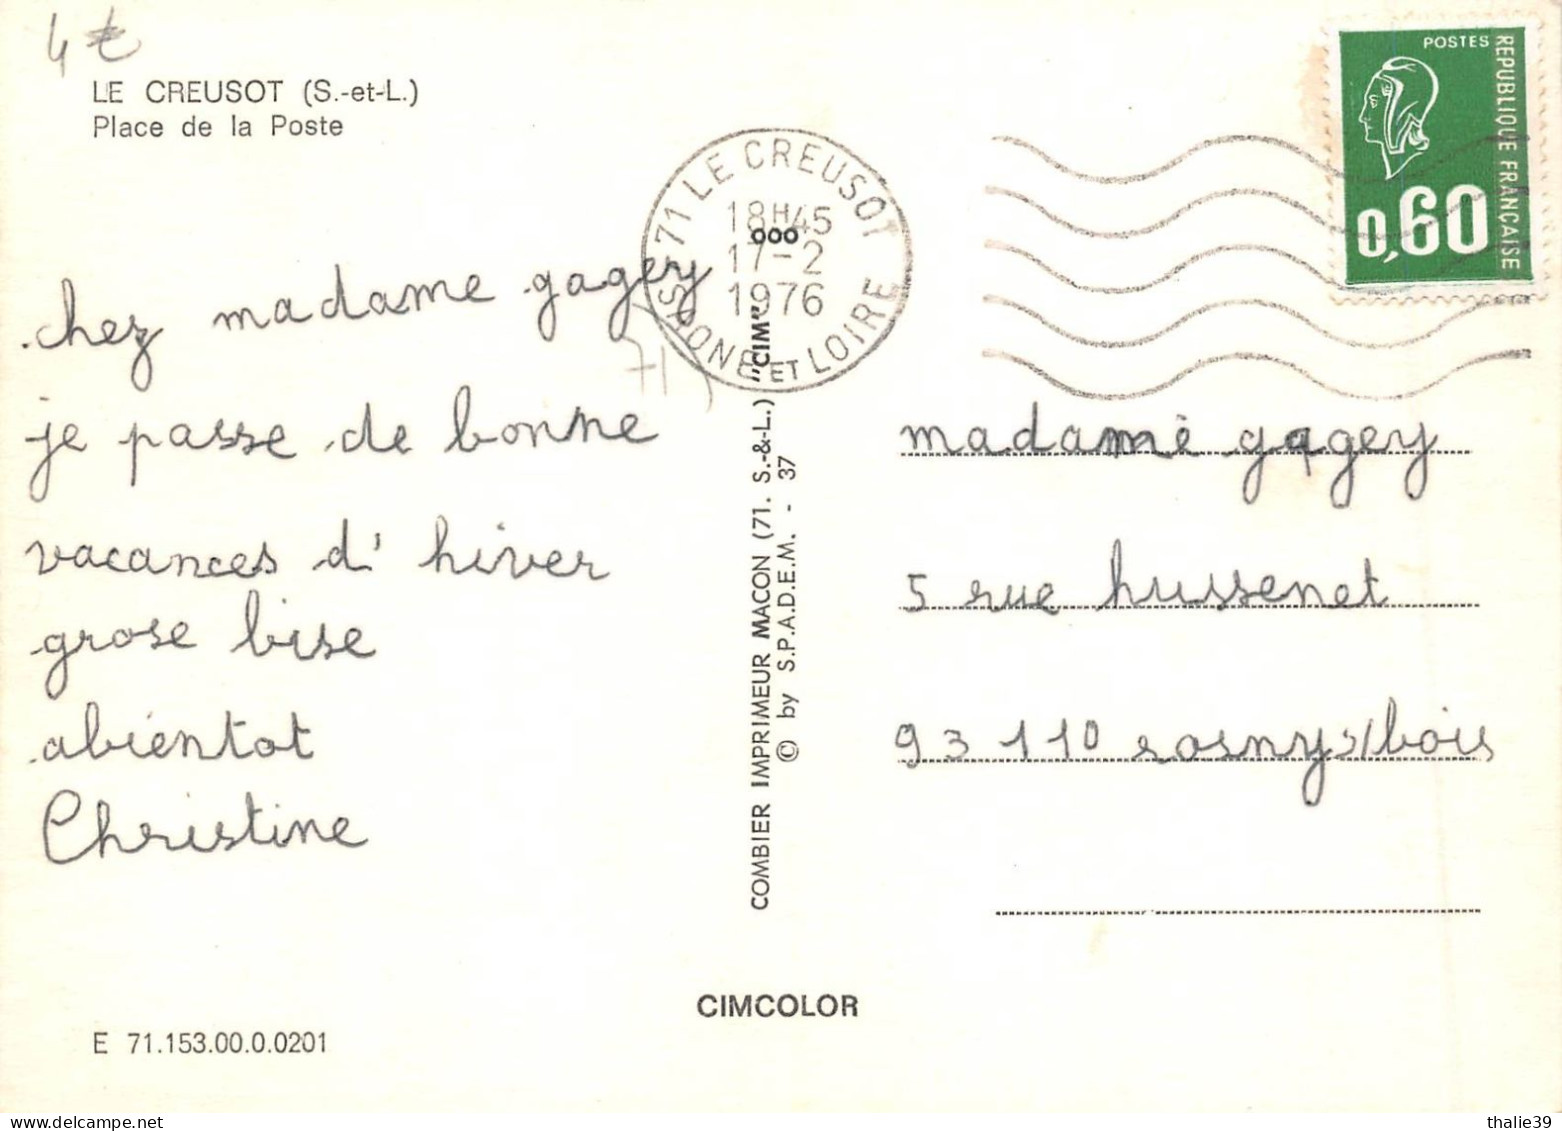 4 €
LE CREUSOT (S.-et-L.)
Place de la Poste
POSTES
REPUBLIQUE FRANÇAISE
0,60
71 LE CREUSOT
18H45
17-2
1976
SAONE ET LOIRE
chez madame gagey
je passe de bonne
vacances d'hiver
grose bise
abientot
Christine
71
COMBIER IMPRIMEUR MACON (71. S.-&-L.) "CIM"
© by S.P.A.D.E.M. - 37
madame gagey
5 rue hussenet
93110 rosny s/bois
CIMCOLOR
E 71.153.00.0.0201
thalie39